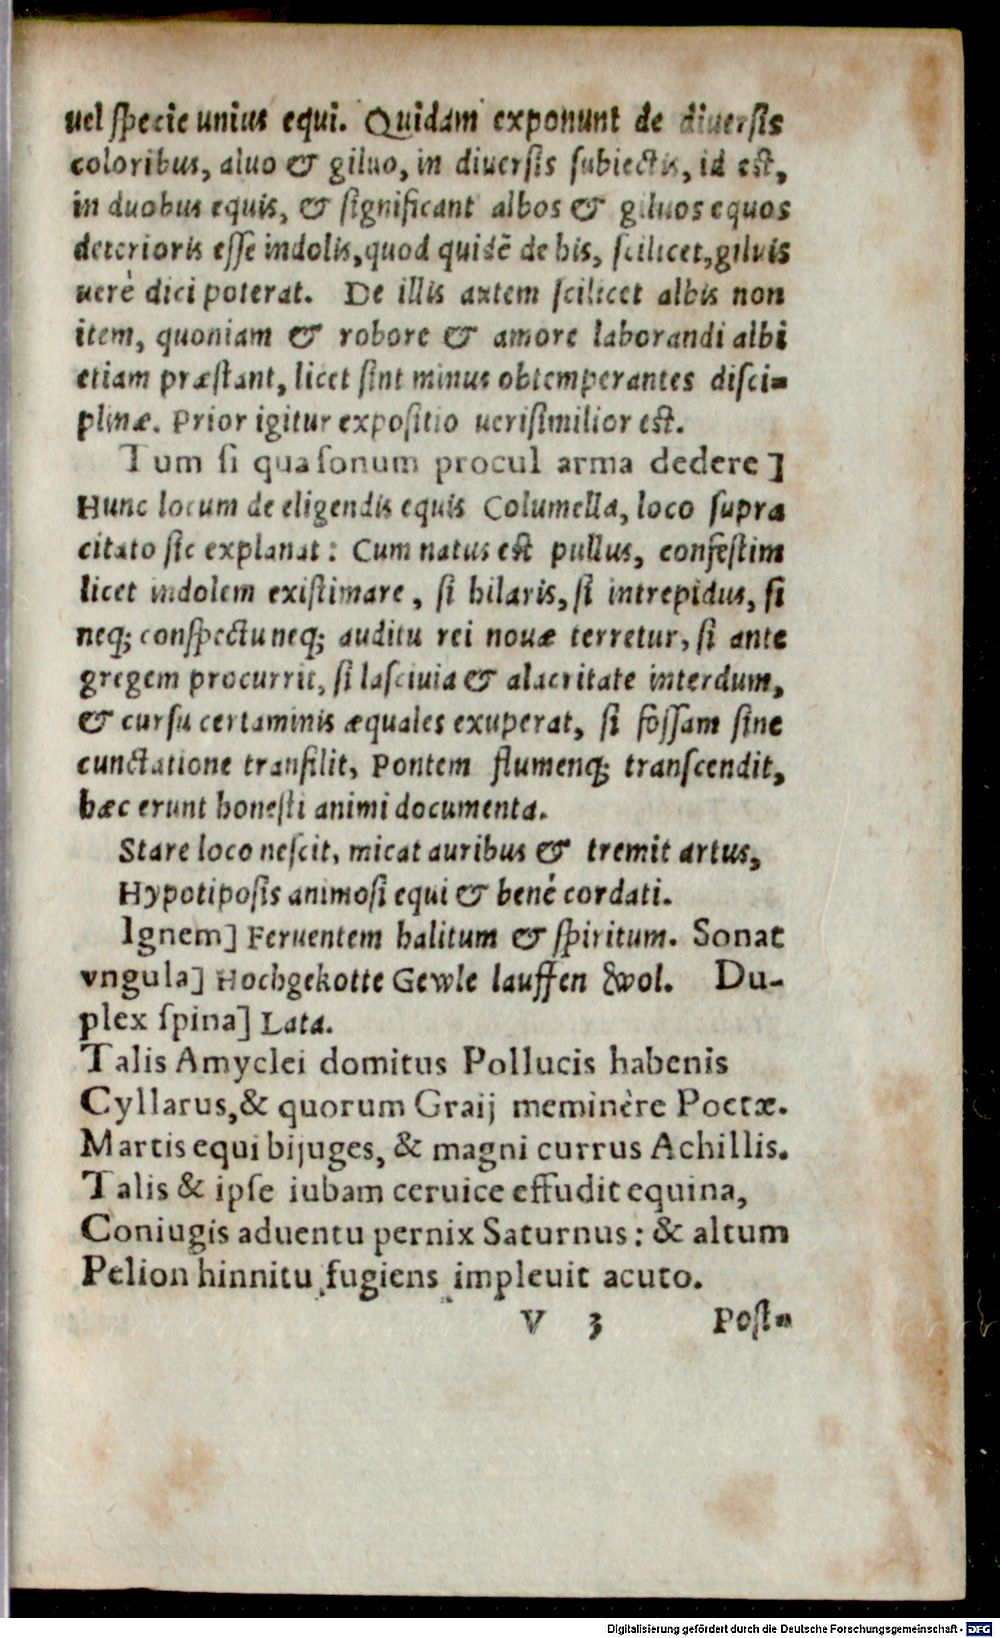 uel ſpecie unius equi. Quidam exponunt de diuerſis
coloribus, aluo & giluo, in diuerſis ſubiectis, id eſt,
in duobus equis, & ſignificant albos & giluos equos
deterioris eſſe indolis, quod quidē de his, ſcilicet, giluis
uerè dici poterat. De illis autem ſcilicet albis non
item, quoniam & robore & amore laborandi albi
etiam præſtant, licet ſint minus obtemperantes diſci-
plinæ. Prior igitur expoſitio ueriſimilior eſt.
Tum ſi qua ſonum procul arma dedere]
Hunc locum de eligendis equis Columella, loco ſupra
citato ſic explanat: Cum natus eſt pullus, confeſtim
licet indolem exiſtimare, ſi hilaris, ſi intrepidus, ſi
neq; conſpectu neq; auditu rei nouæ terretur, ſi ante
gregem procurrit, ſi laſciuia & alacritate interdum,
& curſu certaminis æquales exuperat, ſi foſſam ſine
cunctatione tranſilit, Pontem flumenq; tranſcendit,
hæc erunt honeſti animi documenta.
Stare loco neſcit, micat auribus & tremit artus,
Hypotipoſis animoſi equi & benè cordati.
Ignem] Feruentem halitum & ſpiritum. Sonat
vngula] Hochgekotte Gewle lauffen wol. Du-
plex ſpina] Lata.
Talis Amyclei domitus Pollucis habenis
Cyllarus, & quorum Graij meminère Poetæ.
Martis equi bijuges, & magni currus Achillis.
Talis & ipſe iubam ceruice effudit equina,
Coniugis aduentu pernix Saturnus: & altum
Pelion hinnitu fugiens impleuit acuto.
V 3 Poſt-
Digitalisierung gefördert durch die Deutsche Forschungsgemeinschaft - DFG